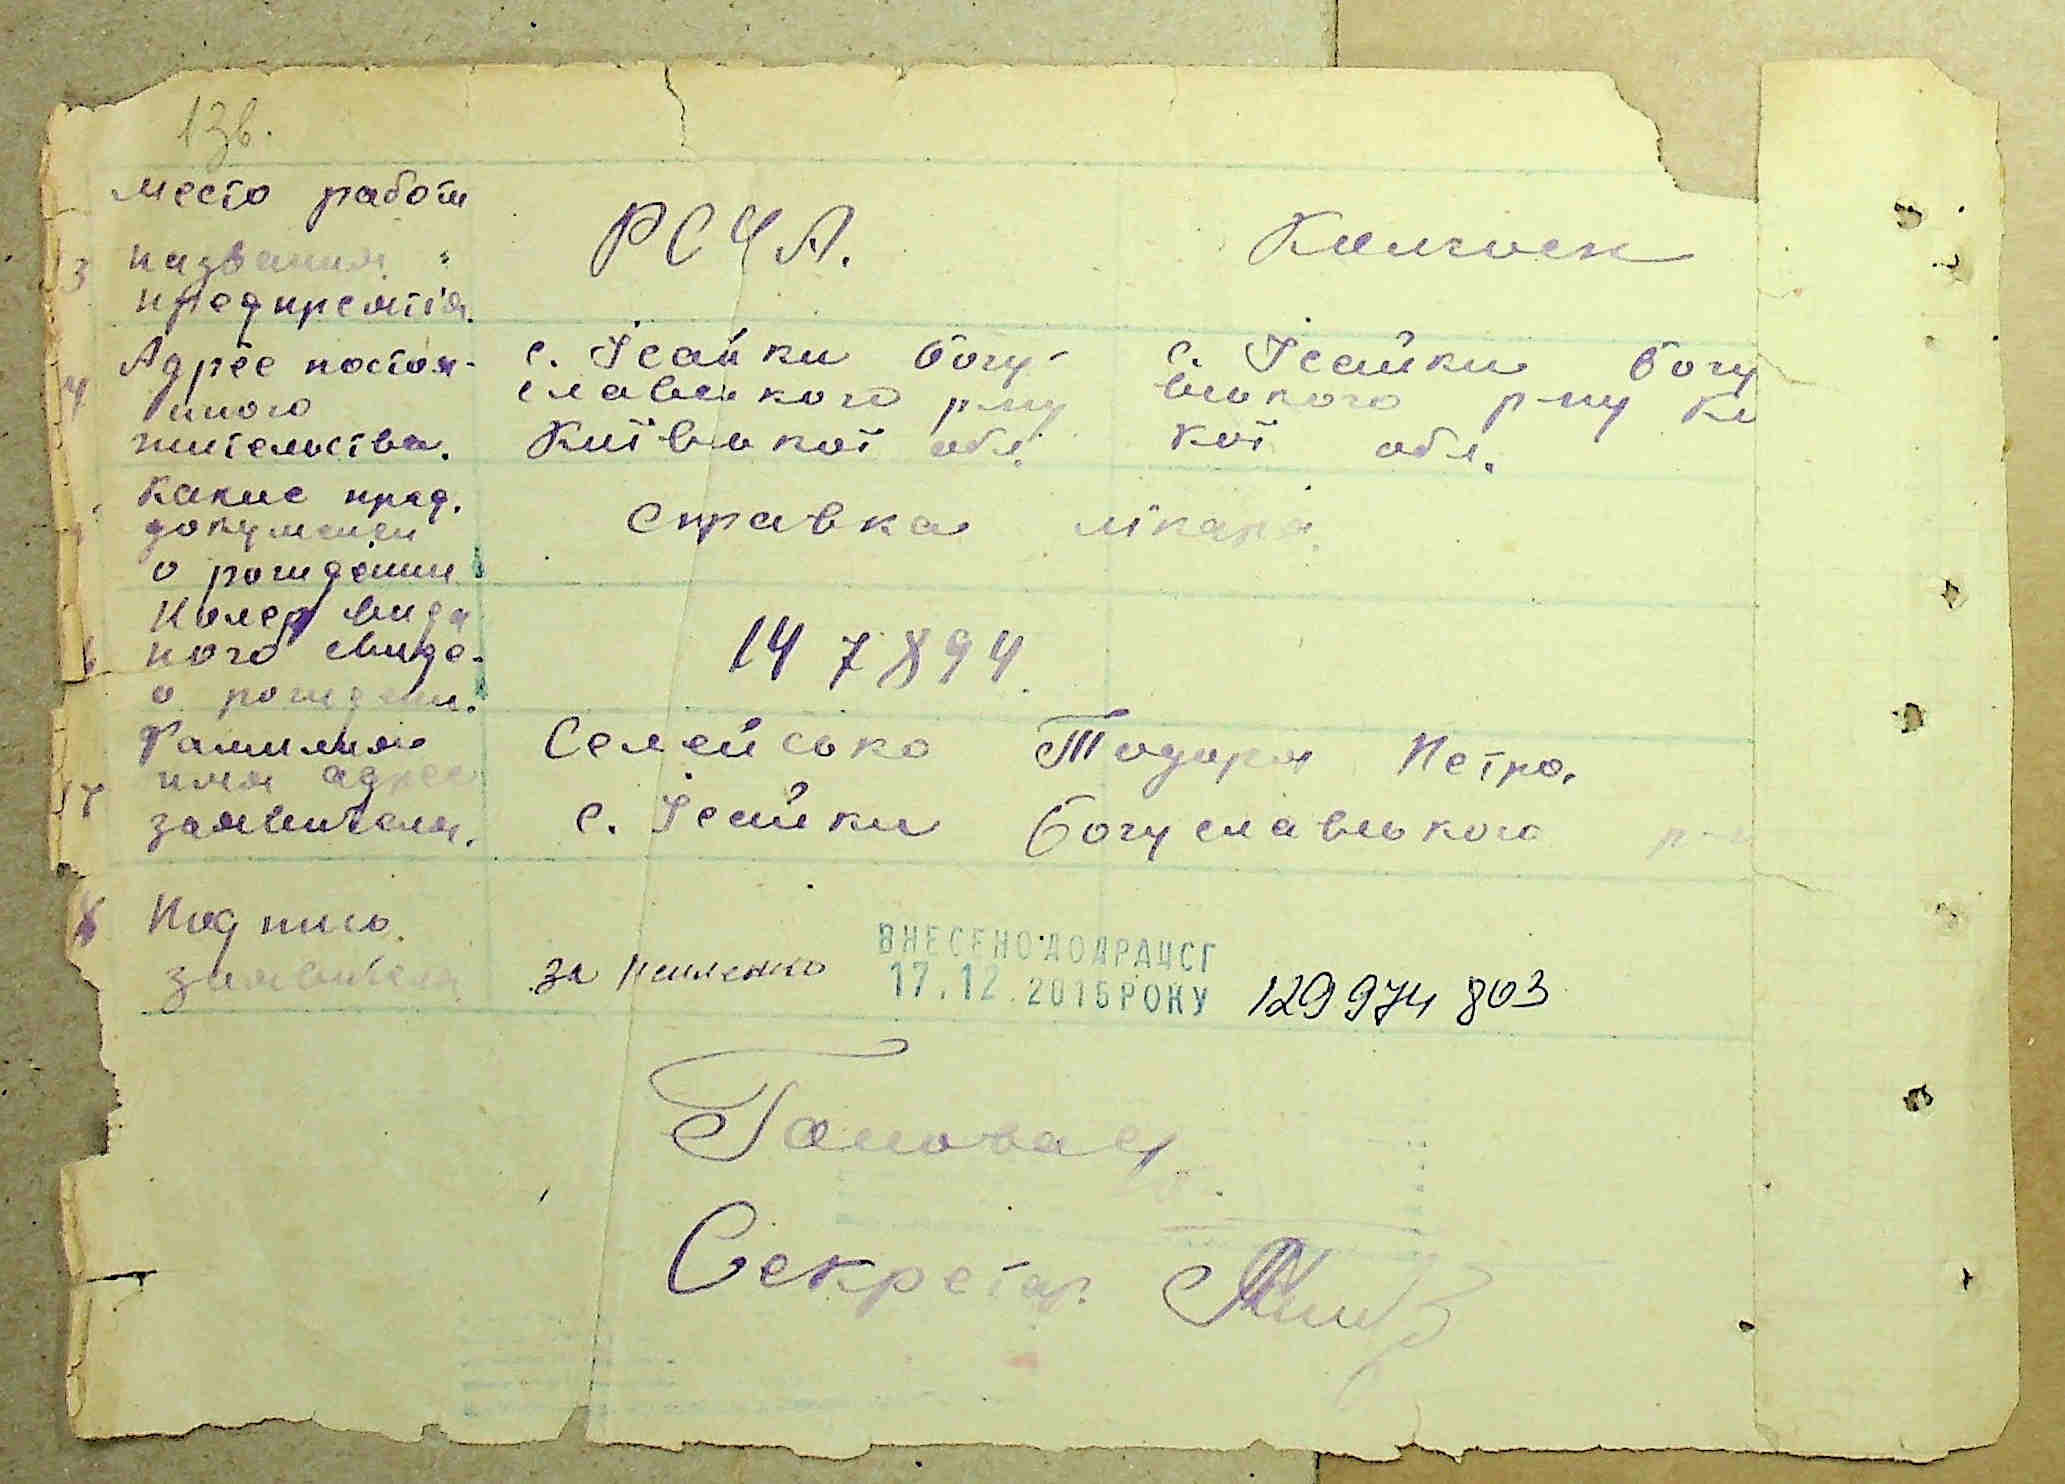 13в.
Место работи
3 название
предприятія.
РСЧА.
Колгосп
4 Адрес постоя-
нного
жительства.
с. Ісайки Богу-
славського р-ну
Київської обл.
с. Ісайки Богу
вського р-ну Ки
кої обл.
Какие пред.
документи
о рождении
Справка лікаря.
Номер вида
ного свиде-
о рожден.
147894.
17 Фамилия
имя адрес
заявителя.
Семейсько Тодора Петро.
с. Ісайки Богуславського р-н
8 Подпись
заявителя
за
ВНЕСЕНО ДО ДРАЦСГ
17.12.2015 РОКУ
129 974 803
Голова
Секретар